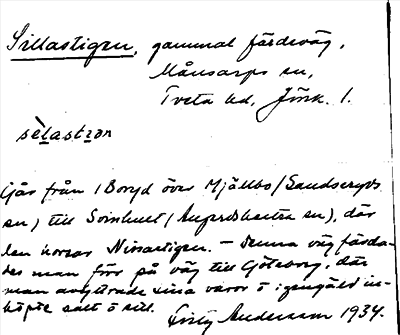 Sillastigen, gammal färdeväg,
Månsarps sn,
Tveta hd, Jönk. l.
sèlastıɡən
Går från (Boryd över Mjällbo (Sandseryds
sn) till Svinhult (Angerdshestra sn), där
den korsar Nissastigen. – Denna väg färda-
des man förr på väg till Göteborg, där
man avyttrade sina varor o i gengäld in-
köpte salt o sill. Fritz Andersson 1934.